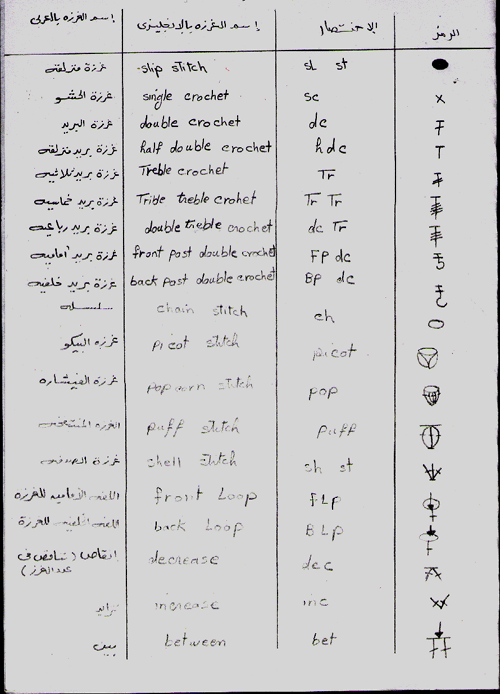 إسم الغرزه بالعربى إسم الغرزه بالإنجليزى الإختصار الرمز
غرزة منزلقه slip stitch sL st
غرزة الحشو single crochet sc x
غرزة البريد double crochet dc
غرزة بريد منزلقه half double crochet hdc
غرزة بريد ثلاثيه Treble crochet Tr
غرزة بريد خماسيه Trible treble crohet Tr Tr
غرزة بريد رباعيه double treble crochet dc Tr
غرزة بريد أماميه front post double crochet FP dc
غرزة بريد خلفيه back post double crochet BP dc
سلسله chain stitch ch
غرزه البيكو picot stitch picot
غرزة الفيشاره popcorn stitch pop
الغرزه المنتفخه puff stitch puff
غرزة الصدفه shell stitch sh st
اللفه الأماميه للغرزه front Loop FLp
اللفه الخلفيه للغرزة back Loop BLp
إنقاص (تناقص فى عدد الغرز) decrease dec
تزايد increase inc
بين between bet